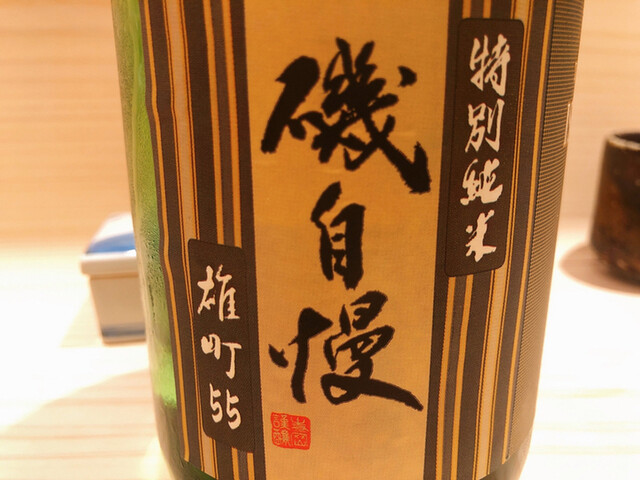 特別純米
磯自慢
雄町55